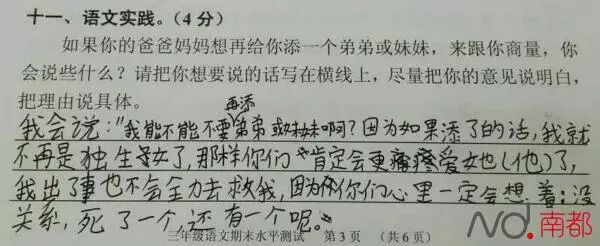 十一、语文实践。(4分)
如果你的爸爸妈妈想再给你添一个弟弟或妹妹，来跟你商量，你
会说些什么？请把你想要说的话写在横线上，尽量把你的意见说明白，
把理由说具体。
再添
我会说："我能不能不要弟弟或妹妹啊？因为如果添了的话，我就
不再是独生子女了，那样你们肯定会更疼爱她(他)了，
我出了事也不会全力去救我，因为你们心里一定会想着：没
关系，死了一个，还有一个呢。"
三年级语文期末水平测试 第3页 (共6页)
nd.南都